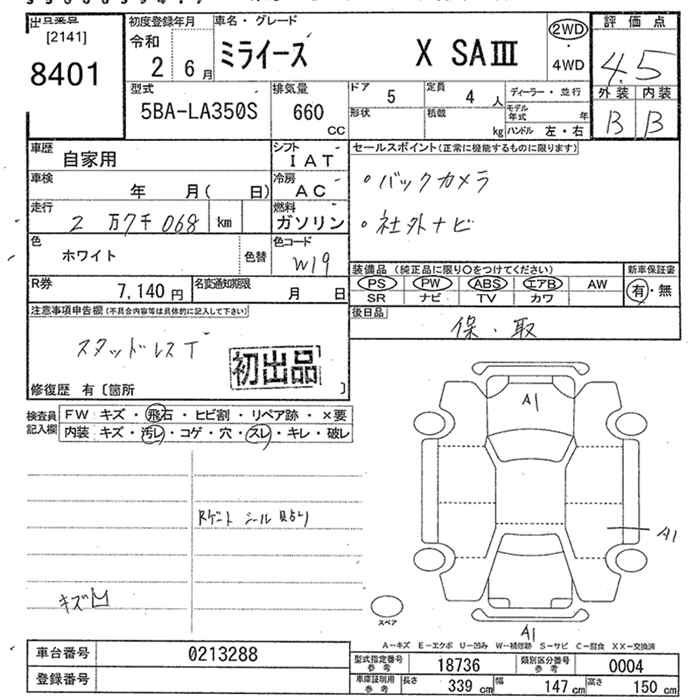 出品票
[2141]
8401
初度登録年月
令和
2 6月
車名・グレード
ミライース X SAⅢ
2WD
・
4WD
評価点
4.5
外装 内装
B B
型式
5BA-LA350S
排気量
660
CC
ドア 5
定員 4 人
形状
積載 kg
ディーラー・並行
モデル年式 年
ハンドル 左・右
車歴
自家用
シフト
IAT
車検
年 月( 日)
冷房
AC
走行
2 万7千068 km
燃料
ガソリン
色
ホワイト
色替
色コード
W19
R券
7,140 円
名変通知期限
月 日
セールスポイント(正常に機能するものに限ります)
・バックカメラ
・社外ナビ
装備品 (純正品に限り○をつけてください)
PS PW ABS エアB AW
SR ナビ TV カワ
新車保証書
有・無
後日品
保・取
注意事項申告欄(不具合内容等は具体的に記入して下さい)
スタッドレスT
初出品
修復歴 有〔箇所 〕
検査員記入欄
FW キズ・飛石・ヒビ割・リペア跡・×要
内装 キズ・汚レ・コゲ・穴・スレ・キレ・破レ
キズ凹
A1
A1
A1
スペア
A-キズ E-エクボ U-凹み W-補修跡 S-サビ C-腐食 XX-交換済
車台番号
0213288
登録番号
型式指定番号
参考
18736
類別区分番号
参考
0004
車庫証明用
参考
長さ 339 cm
幅 147 cm
高さ 150 cm